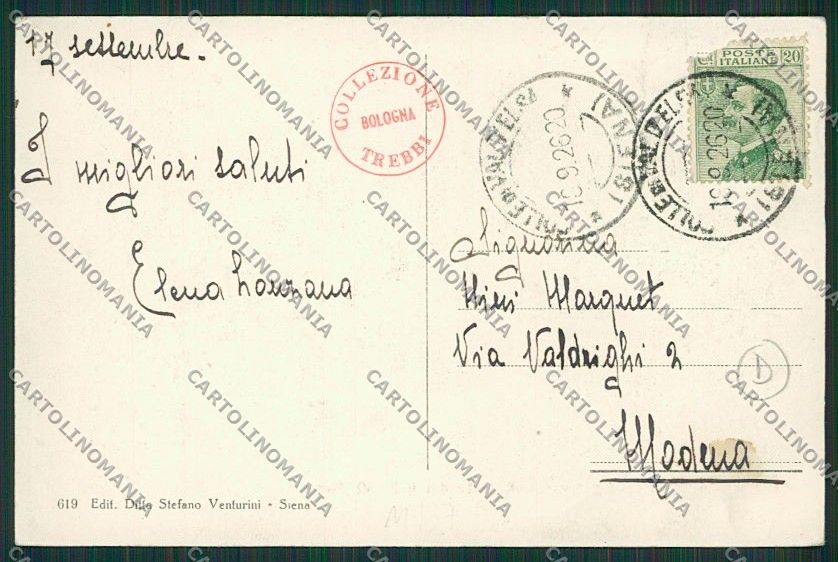 17 settembre.
I migliori saluti
Elena Lonzana
COLLEZIONE
BOLOGNA
TREBBI
COLLE DI VAL D'ELSA
16.9.26.20
(SIENA)
POSTE
ITALIANE
20
COLLE DI VAL D'ELSA
16.9.26.20
(SIENA)
Signorina
Mimi Marquet
Via Valdrighi 2
Modena
D
619 Edit. Ditta Stefano Venturini - Siena
CARTOLINOMANIA